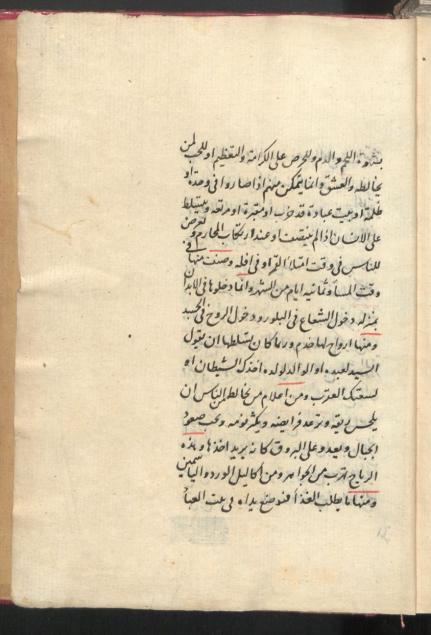 بشهوة اللحم والدم والحرص على الكرامة والتعظيم او للحب لمن
يخالطه والعشق وانما يتمكن منهم اذا صاروا في وحدة او
ظلمة او بيت عبادة قد خرب او مقبرة او مزبلة ويتسلط
على الانسان اذا لم ينتصت او عند ارتكاب المحارم و تعرض
للناس في وقت امتلا القمر او في افله وصنف منها في
وقت المسا وثمانية ايام من الشهر وانما دخولها في الابدان
بمنزلة دخول الشعاع في البلور ودخول الروح في الجسد
ومنها ارواح لها خدم وربما كان تسلطها ان يقول
السيد لعبده او الوالد لولده اخذك الشيطان او
لسعتك العقرب ومن اعلام من يخالط من الناس ان
ييبس ريقه وترعد فرايضه ويكثر نومه ويحب صعود
الجبال ويعدو على البروق كانه يريد اخذها وهذه
الرياح تهرب من الجواهر ومن اكاليل الورد والياسمين
ومنها ما يطلب الغذا فتوضع يداه في بيت العبا